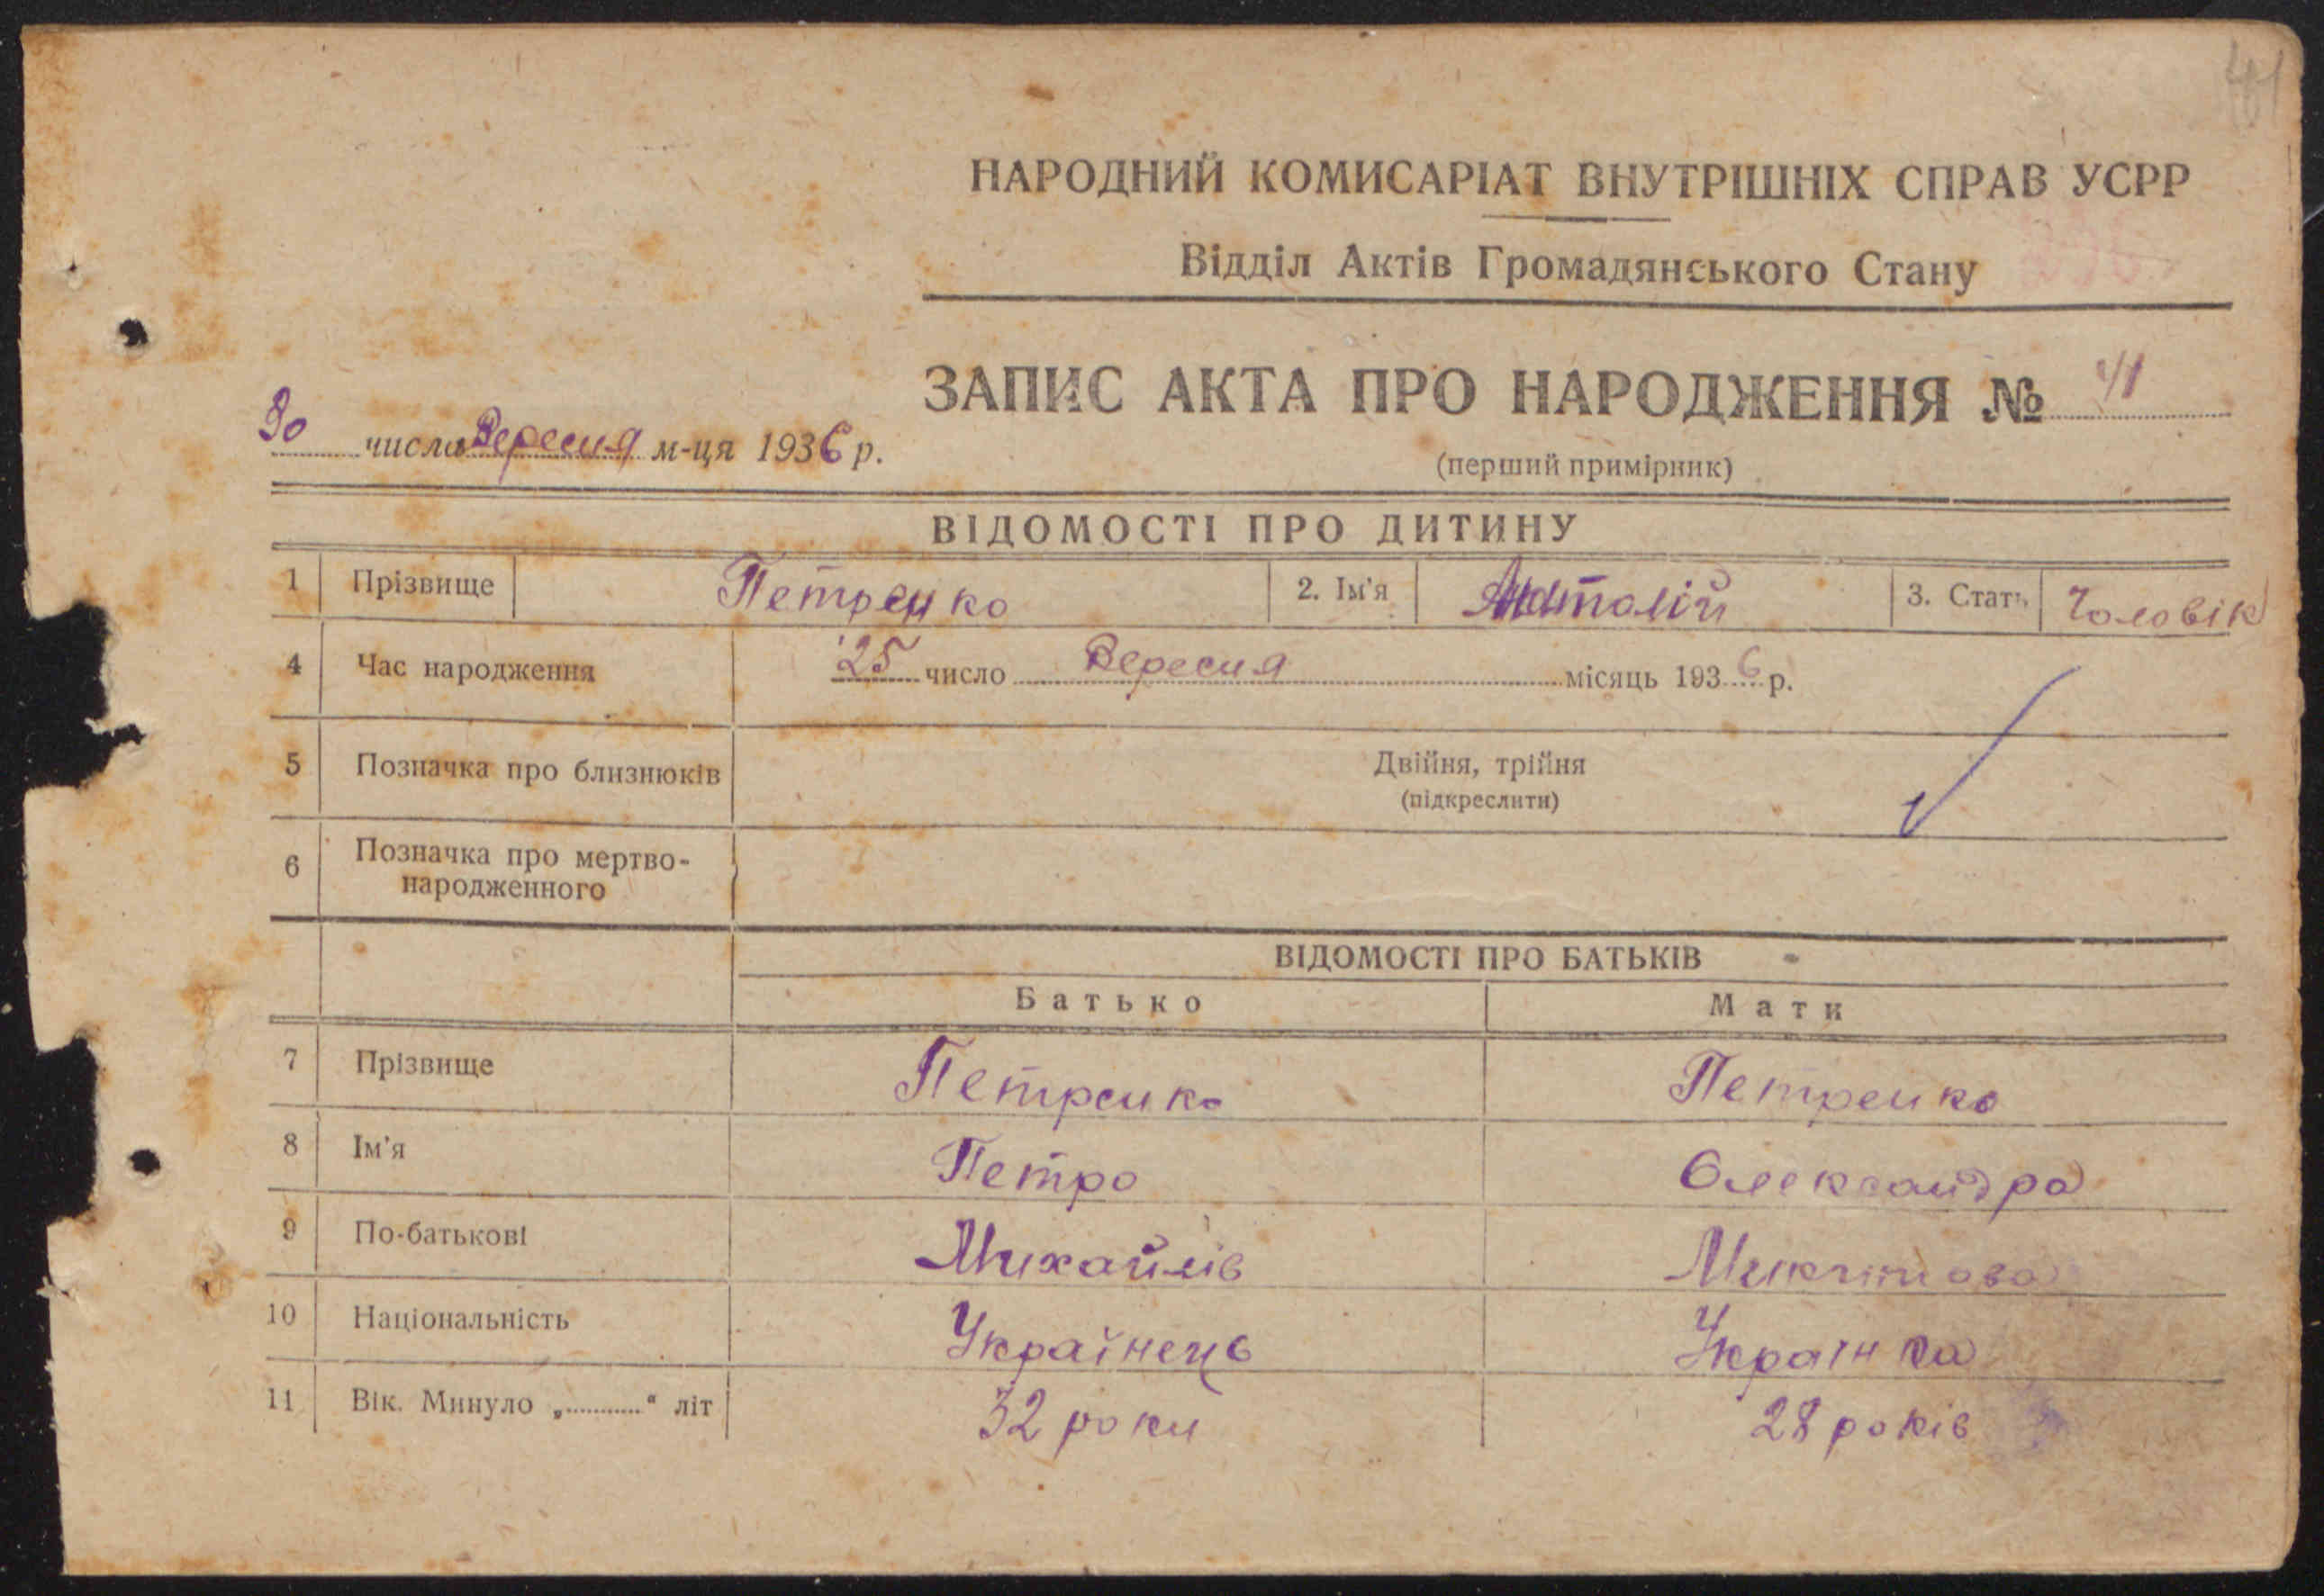 41
НАРОДНИЙ КОМИСАРІАТ ВНУТРІШНІХ СПРАВ УСРР
Відділ Актів Громадянського Стану
ЗАПИС АКТА ПРО НАРОДЖЕННЯ № 41
30 числа Вересня м-ця 1936 р.
(перший примірник)
ВІДОМОСТІ ПРО ДИТИНУ
1 Прізвище Петренко 2. Ім'я Анатолій 3. Стать Чоловік
4 Час народження 25 число Вересня місяць 1936 р.
5 Позначка про близнюків Двійня, трійня
(підкреслити)
6 Позначка про мертво-
народженного
ВІДОМОСТІ ПРО БАТЬКІВ
Батько Мати
7 Прізвище Петренко Петренко
8 Ім'я Петро Олександра
9 По-батькові Михайлів Микитова
10 Національність Українець Українка
11 Вік. Минуло „..........“ літ 32 роки 28 років